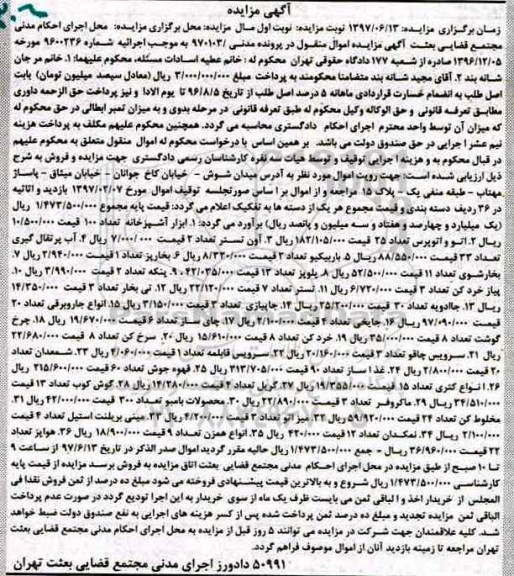 آگهی مزایده
زمان برگزاری مزایده: ۱۳۹۷/۰۶/۱۳ نوبت مزایده: نوبت اول سال مزایده: محل برگزاری مزایده: محل اجرای احکام مدنی
مجتمع قضایی بعثت آگهی مزایده اموال منقول در پرونده مدنی ۹۷۰۱۰۳/ به موجب اجرائیه شماره ۹۶۰۰۲۳۶ مورخه
۱۳۹۶/۱۲/۰۵ صادره از شعبه ۱۷۷ دادگاه حقوقی تهران محکوم له: خانم عطیه اسادات مسئله، محکوم علیهما: ۱. خانم مرجان
شانه بند ۲. آقای مجید شانه بند متضامنا محکومند به پرداخت مبلغ ۳/۰۰۰/۰۰۰/۰۰۰ ریال (معادل سیصد میلیون تومان) بابت
اصل طلب به انضمام خسارت قراردادی ماهانه ۵ درصد اصل طلب از تاریخ ۹۶/۸/۵ تا یوم الادا و نیز پرداخت حق الزحمه داوری
مطابق تعرفه قانونی و حق الوکاله وکیل محکوم له طبق تعرفه قانونی در مرحله بدوی و به میزان تمبر ابطالی در حق محکوم له
که میزان آن توسط واحد محترم اجرای احکام دادگستری محاسبه می گردد. همچنین محکوم علیهم مکلف به پرداخت هزینه
نیم عشر اجرایی در حق صندوق دولت می باشد. بر همین اساس با درخواست محکوم له اموال منقول متعلق به محکوم علیهم
در قبال محکوم به و هزینه اجرایی توقیف و توسط هیات سه نفره کارشناسان رسمی دادگستری جهت مزایده و فروش به شرح
ذیل ارزیابی شده است: جهت رویت اموال مورد نظر به آدرس میدان شوش - خیابان کاخ جوانان - خیابان میثاق - پاساژ
مهتاب - طبقه منفی یک - پلاک ۱۵ مراجعه و از اموال بر اساس صورتجلسه توقیف اموال مورخ ۱۳۹۷/۰۲/۰۷ بازدید و اثاثیه
در ۳۶ ردیف دسته بندی و قیمت مجموع هر یک از دسته ها به تفکیک اعلام می گردد: قیمت پایه مجموع ۱/۴۷۳/۵۰۰/۰۰۰ ریال
(یک میلیارد و چهارصد و هفتاد و سه میلیون و پانصد ریال) برآورد می گردد: ۱. ابزار آشپزخانه تعداد ۱۰۰ قیمت ۱۰/۵۰۰/۰۰۰
ریال ۲. اتو و اتوپرس تعداد ۳۵ قیمت ۱۸۲/۱۰۵/۰۰۰ ریال ۳. آون تستر تعداد ۲ قیمت ۷/۰۰۰/۰۰۰ ریال ۴. آب پرتقال گیری
تعداد ۳۳ قیمت ۸۸/۵۵۰/۰۰۰ ریال ۵. باربیکیو تعداد ۳ قیمت ۸/۳۲۰/۰۰۰ ریال ۶. بخارپز تعداد ۱ قیمت ۲/۹۴۰/۰۰۰ ریال ۷.
بخارشوی تعداد ۱۱ قیمت ۵۲/۵۰۰/۰۰۰ ریال ۸. پلوپز تعداد ۱۳ قیمت ۴۲/۰۳۵/۰۰۰ ۹. پنکه تعداد ۲ قیمت ۳/۹۹۰/۰۰۰ ریال ۱۰.
پیاز خرد کن تعداد ۳ قیمت ۶/۷۲۰/۰۰۰ ریال ۱۱. تستر تعداد ۷ قیمت ۲۲/۱۲۰/۰۰۰ ریال ۱۲. تی بخار تعداد ۳ قیمت ۱۴/۳۵۰/۰۰۰
ریال ۱۳. جاادویه تعداد ۳۰ قیمت ۲۵/۲۰۰/۰۰۰ ریال ۱۴. جاپیازی تعداد ۳ قیمت ۳/۱۵۰/۰۰۰ ریال ۱۵. انواع جاروبرقی تعداد ۲۰
قیمت ۹۷/۰۹۰/۰۰۰ ریال ۱۶. جایخی تعداد ۴ قیمت ۲/۱۰۰/۰۰۰ ریال ۱۷. چای ساز تعداد ۶ قیمت ۱۹/۶۷۰/۰۰۰ ریال ۱۸. چرخ
گوشت تعداد ۸ قیمت ۳۵/۰۰۰/۰۰۰ ریال ۱۹. خرد کن تعداد ۸ قیمت ۱۵/۶۱۰/۰۰۰ ریال ۲۰. سرخ کن تعداد ۸ قیمت ۲۲/۶۸۰/۰۰۰
ریال ۲۱. سرویس چاقو تعداد ۳ قیمت ۲۰/۱۶۰/۰۰۰ ریال ۲۲. سرویس قابلمه تعداد ۱ قیمت ۲/۰۶۰/۰۰۰ ریال ۲۳. شمعدان تعداد
۲۰ قیمت ۲/۸۰۰/۰۰۰ ریال ۲۴. غذا ساز تعداد ۹۰ قیمت ۳۱۳/۷۰۵/۰۰۰ ریال ۲۵. قهوه جوش تعداد ۶۰ قیمت ۲۱۵/۶۰۰/۰۰۰ ریال
۲۶. انواع کتری تعداد ۱۵ قیمت ۱۹/۳۵۵/۰۰۰ ریال ۲۷. گریل تعداد ۴ قیمت ۱۴/۲۸۰/۰۰۰ ریال ۲۸. گوش کوب تعداد ۱۳ قیمت
۳۴/۵۱۰/۰۰۰ ریال ۲۹. ماکروفر تعداد ۳ قیمت ۲۲/۸۹۰/۰۰۰ ریال ۳۰. محصولات بامبو تعداد ۳۰۰ قیمت ۴۲/۰۰۰/۰۰۰ ریال ۳۱.
مخلوط کن تعداد ۲۴ قیمت ۵۹/۹۲۰/۰۰۰ ریال ۳۲. میز اتو تعداد ۳ قیمت ۴/۲۰۰/۰۰۰ ریال ۳۳. مینی بریلنت استیل تعداد ۴ قیمت
۲/۱۰۰/۰۰۰ ریال ۳۴. نمکدان تعداد ۱۲ قیمت ۴۲۰/۰۰۰ ریال ۳۵. انواع همزن تعداد ۹ قیمت ۱۸/۹۰۰/۰۰۰ ریال ۳۶. هواپز تعداد
۲۲ قیمت ۳۶/۹۶۰/۰۰۰ ریال - جمع ۱/۴۷۳/۵۰۰/۰۰۰ ریال حالیه مقرر گردید اموال صدر الذکر در تاریخ ۹۷/۶/۱۳ از ساعت ۹
تا ۱۰ صبح از طبق مزایده در محل اجرای احکام مدنی مجتمع قضایی بعثت اتاق مزایده به فروش برسد مزایده از قیمت پایه
کارشناسی ۱/۴۷۳/۵۰۰/۰۰۰ ریال شروع و به بالاترین قیمت پیشنهادی فروخته می شود مبلغ ده درصد از ثمن فروش نقدا فی
المجلس از خریدار اخذ و الباقی ثمن می بایست ظرف یک ماه از سوی خریدار به این اجرا تودیع گردد در صورت عدم پرداخت
الباقی ثمن مزایده تجدید و مبلغ ده درصد ثمن پرداخت شده پس از کسر هزینه های اجرایی به نفع صندوق دولت ضبط خواهد
شد. کلیه علاقمندان جهت شرکت در مزایده می توانند ۵ روز قبل از مزایده به محل اجرای احکام مدنی مجتمع قضایی بعثت
تهران مراجعه تا زمینه بازدید آنان از اموال موصوف فراهم گردد.
۵۰۹۹۱ دادورز اجرای مدنی مجتمع قضایی بعثت تهران